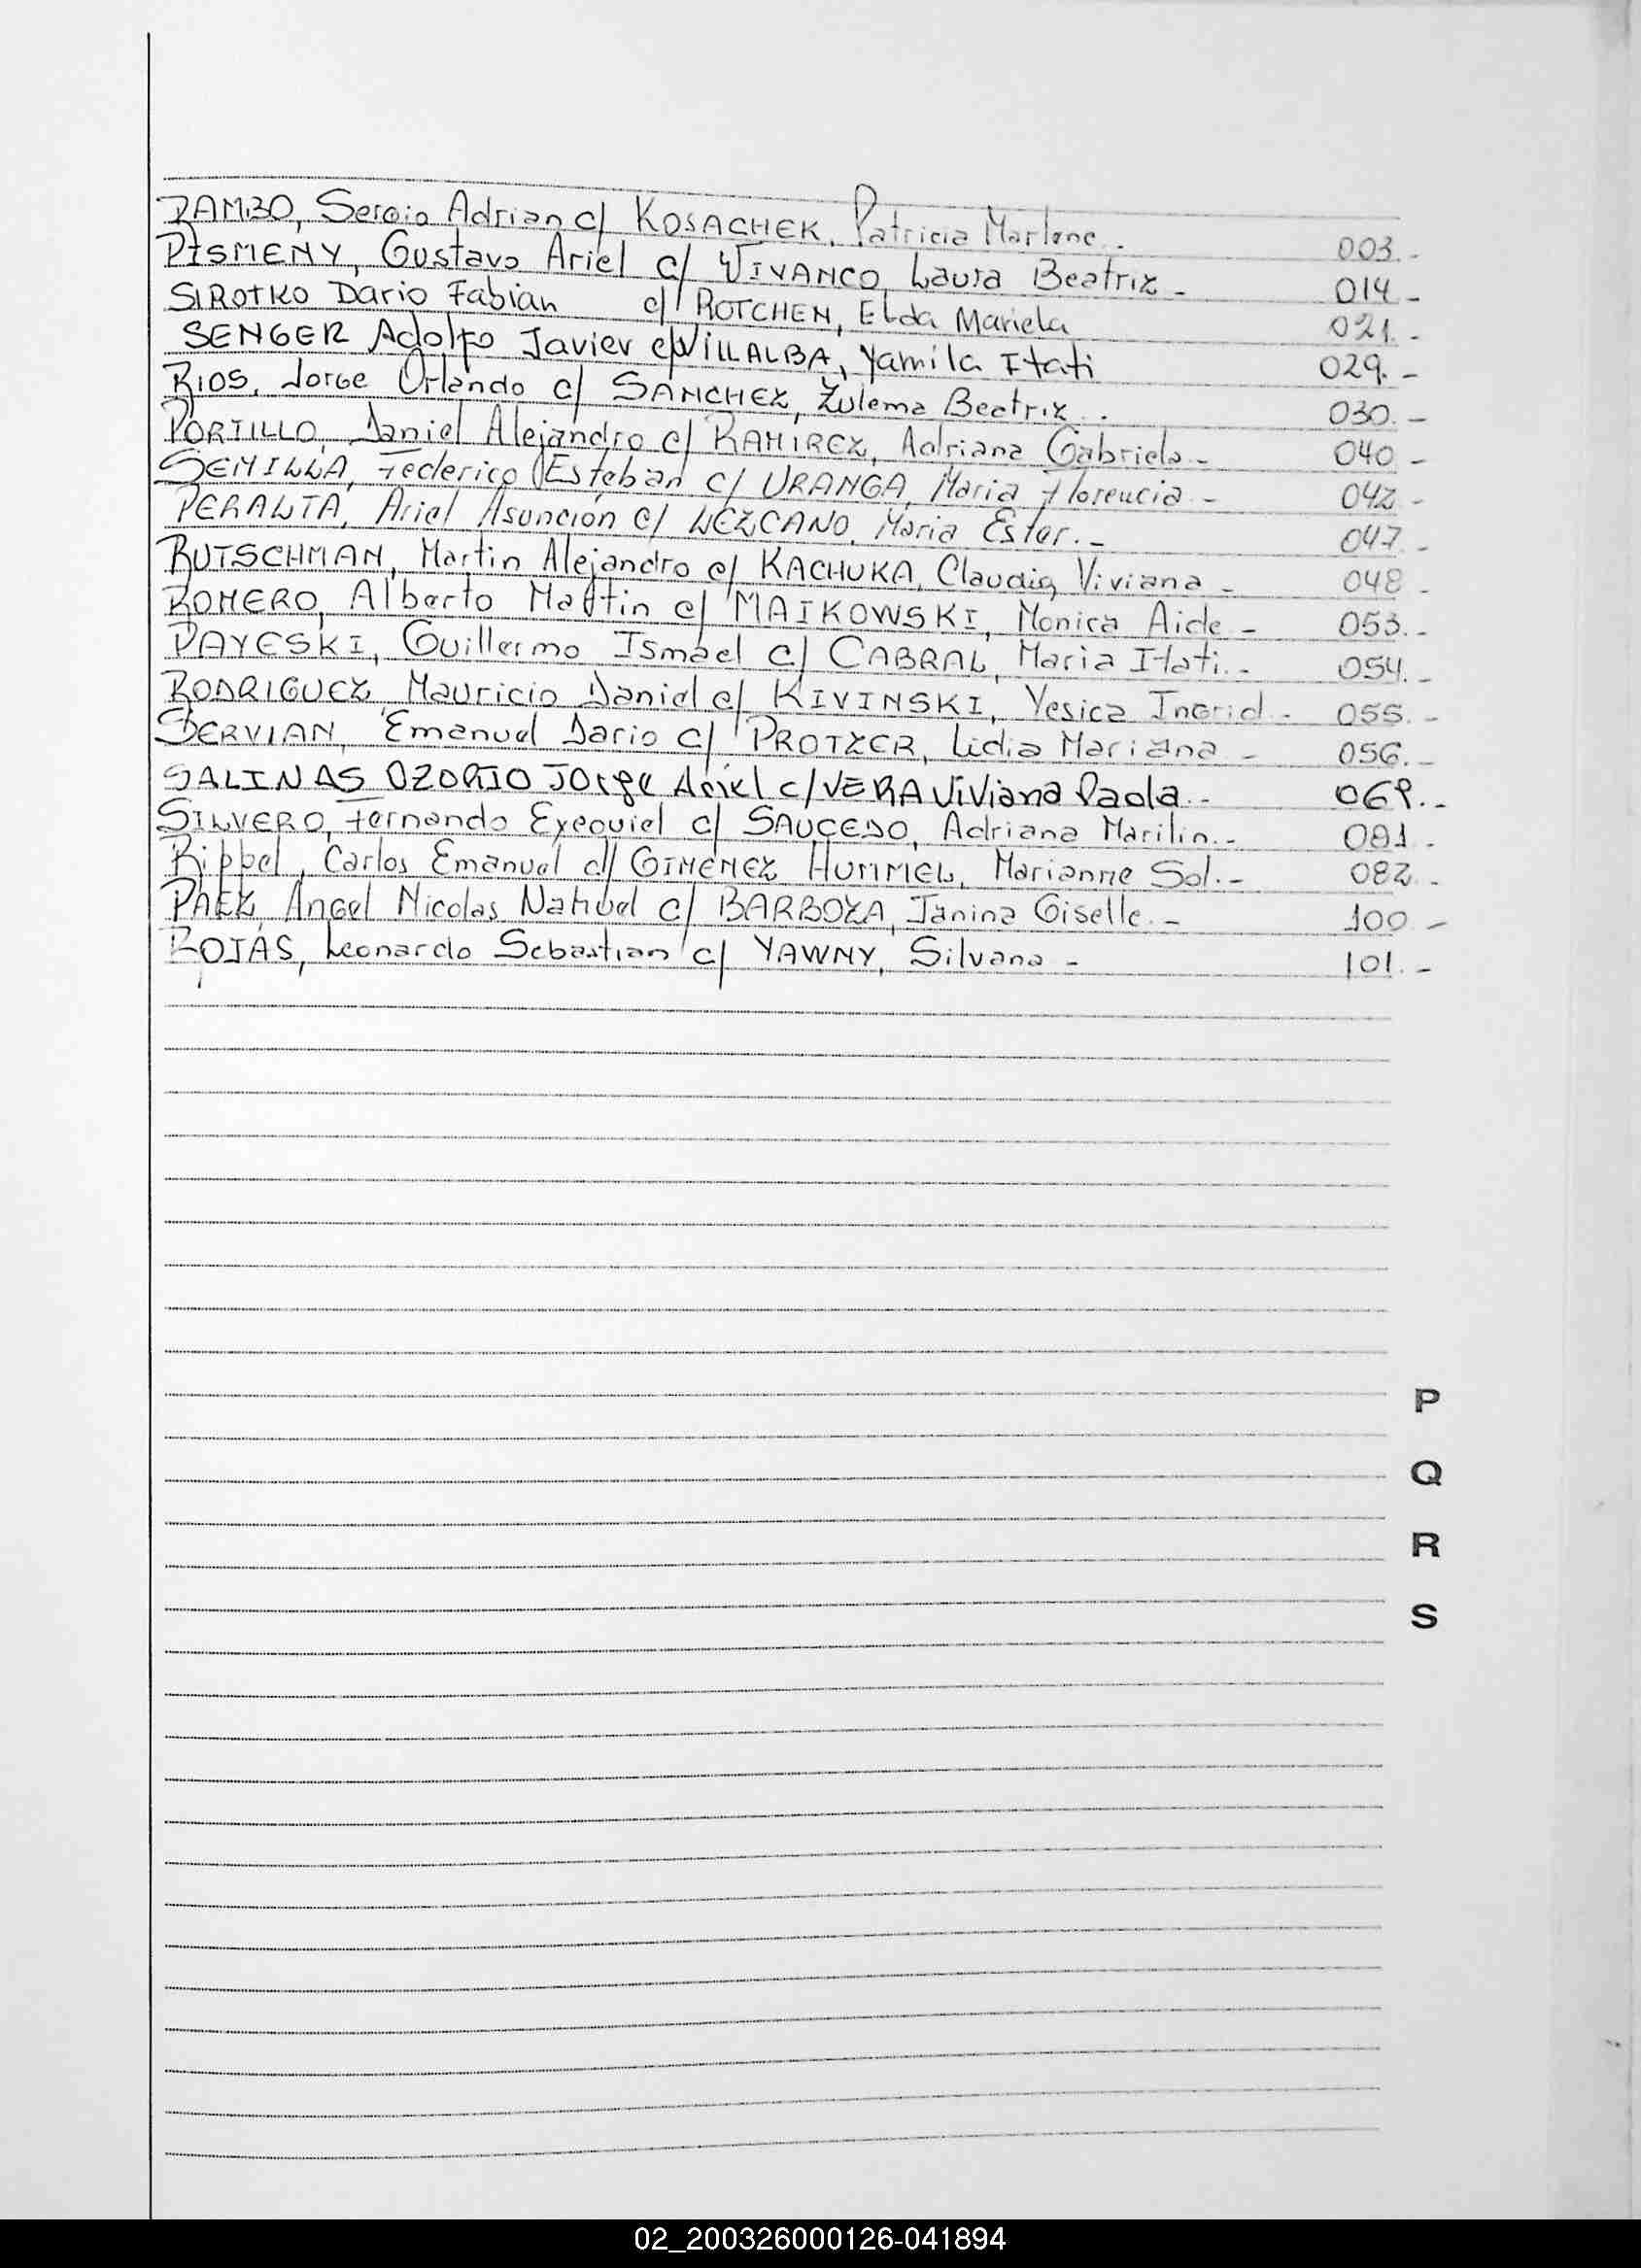 RAMBO, Sergio Adrian c/ KOSACHEK, Patricia Marlene. 003.-
PISMENY, Gustavo Ariel c/ VIVANCO, Laura Beatriz - 014 -
SIROTKO Dario Fabian c/ ROTCHEN, Elda Mariela 021.-
SENGER Adolfo Javier c/ VILLALBA, Yamila Itati 029.-
RIOS, Jorge Orlando c/ SANCHEZ, Zulema Beatriz. 030.-
PORTILLO, Daniel Alejandro c/ RAMIREZ, Adriana Gabriela - 040 -
SEMILLA, Federico Esteban c/ URANGA, Maria Florencia - 042 -
PERALTA, Ariel Asunción c/ LEZCANO, Maria Ester.- 047.-
RUTSCHMAN, Martin Alejandro c/ KACHUKA, Claudia Viviana - 048 -
ROMERO, Alberto Martin c/ MAIKOWSKI, Monica Aide - 053.-
PAYESKI, Guillermo Ismael c/ CABRAL, Maria Itati.- 054.-
RODRIGUEZ, Mauricio Daniel c/ KIVINSKI, Yesica Ingrid - 055.-
SERVIAN, Emanuel Dario c/ PROTZER, Lidia Mariana - 056.-
SALINAS OZORIO Jorge Ariel c/ VERA Viviana Paola.- 069.-
SILVERO, Fernando Exequiel c/ SAUCEDO, Adriana Marilin.- 081.-
Rippel, Carlos Emanuel c/ GIMENEZ HUMMEL, Marianne Sol.- 082.-
PAEZ, Angel Nicolas Nahuel c/ BARBOZA, Janina Giselle.- 100 -
ROJAS, Leonardo Sebastian c/ YAWNY, Silvana - 101.-
P
Q
R
S
02_200326000126-041894